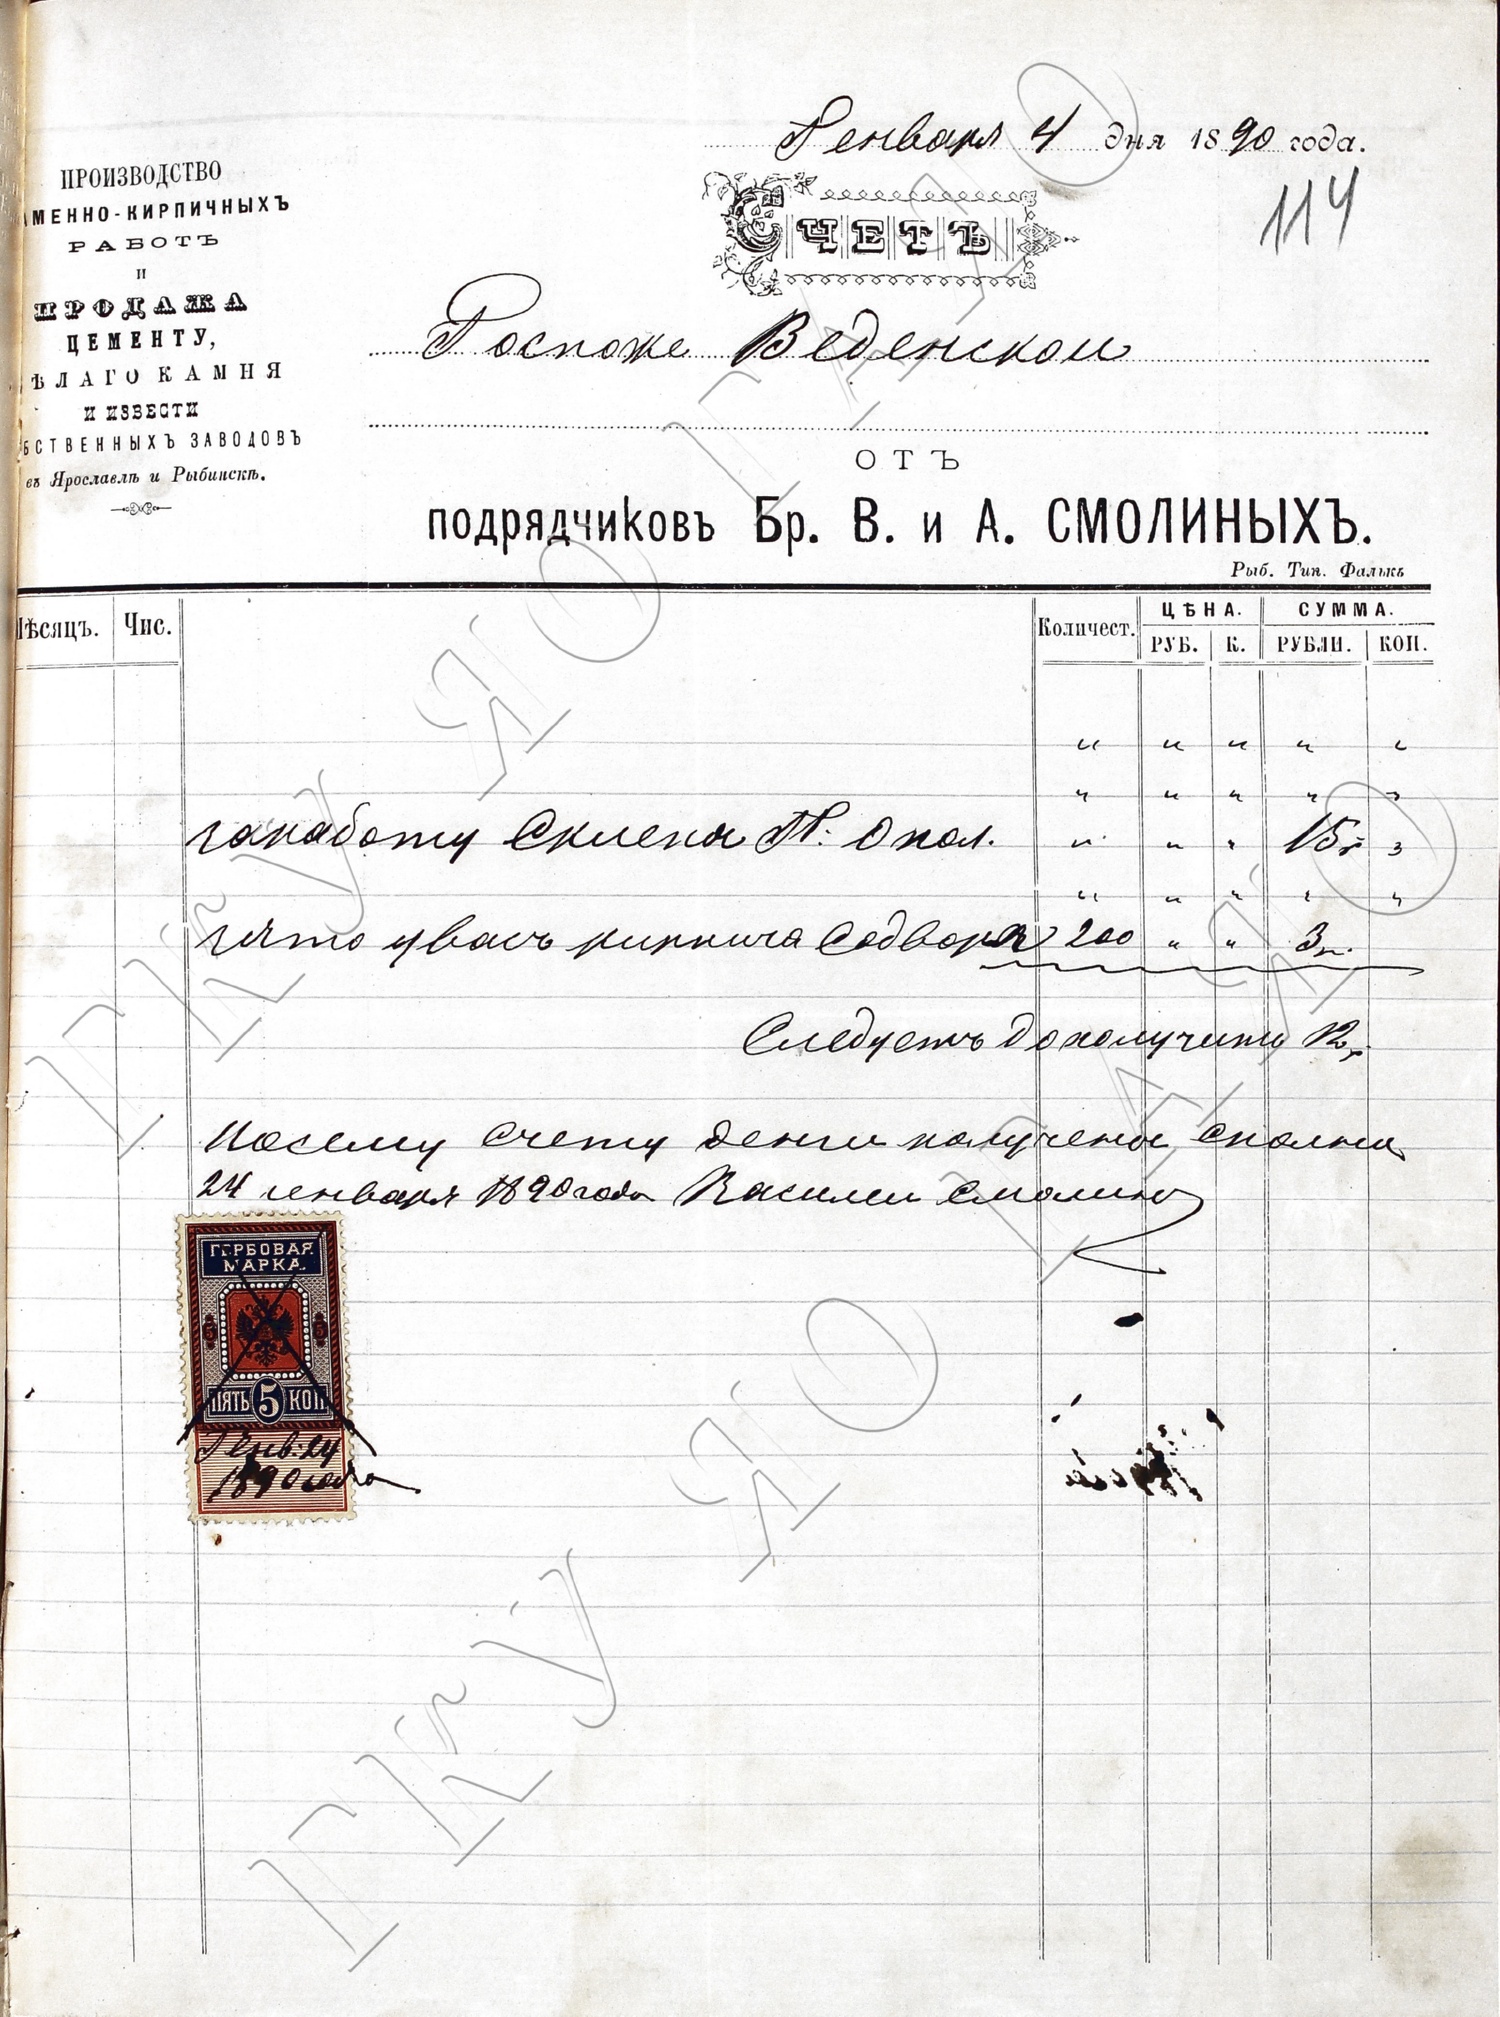 Генваря 4 дня 1890 года.
114
ПРОИЗВОДСТВО
АМЕННО-КИРПИЧНЫХЪ
РАБОТЪ
И
ПРОДАЖА
ЦЕМЕНТУ,
ѢЛАГО КАМНЯ
И ИЗВЕСТИ
БСТВЕННЫХЪ ЗАВОДОВЪ
въ Ярославлѣ и Рыбинскѣ.
СЧЕТЪ
Госпоже Веденской
ОТЪ
подрядчиковъ Бр. В. и А. СМОЛИНЫХЪ.
Рыб. Тип. Фалькъ
Мѣсяцъ. Чис. Количест. ЦѢНА. СУММА.
РУБ. К. РУБЛИ. КОП.
" " " " "
" " " " "
заработу Склепа " " " 15 р "
" " " " "
взято увасъ кирпича Содвора 200 " " 3 р.
Следуетъ Дополучить 12 р
Посему Счету Деньги получены Сполна
24 генваря 1890 года Василей Смолинъ
ГЕРБОВАЯ
МАРКА.
5 5
ПЯТЬ 5 КОП
Генв: 24
1890 года
ГКУ ЯО ГАЯО
ГКУ ЯО ГАЯО